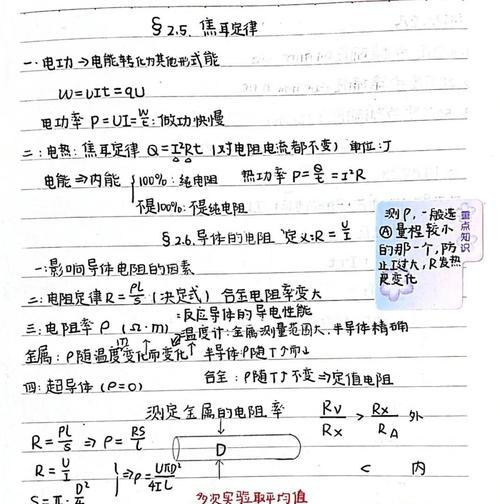 §2.5. 焦耳定律
一.电功→电能转化为其他形式能
W=UIt=qU
电功率 P=UI=W/t:做功快慢
二:电热:焦耳定律 Q=I²Rt (对电阻电流都不变) 单位:J
电能→内能 {100%:纯电阻 热功率 P=Q/t=I²R
不是100%:不是纯电阻
§2.6.导体的电阻 定义:R=U/I
一:影响导体电阻的因素
二:电阻定律 R=ρL/S (决定式) 合金电阻率变大
三:电阻率 ρ (Ω·m) =反应导体的导电性能
温度计:金属测量范围大,半导体精确
金属:ρ随温度变化而变化 半导体ρ随T↑而↓
四:超导体 (ρ=0) 合金:ρ随T↑不变⇒定值电阻
重点知识
测ρ,一般选
Ⓐ量程较小
的那一个,防
止I过大,R发热
变化
测定金属的电阻率
R=ρL/S ⇒ ρ=RS/L
D
R=U/I
S=π·D²
⇒ρ=UπD²/4IL
Rv/Rx > Rx/RA 外
< 内
多次实验取平均值